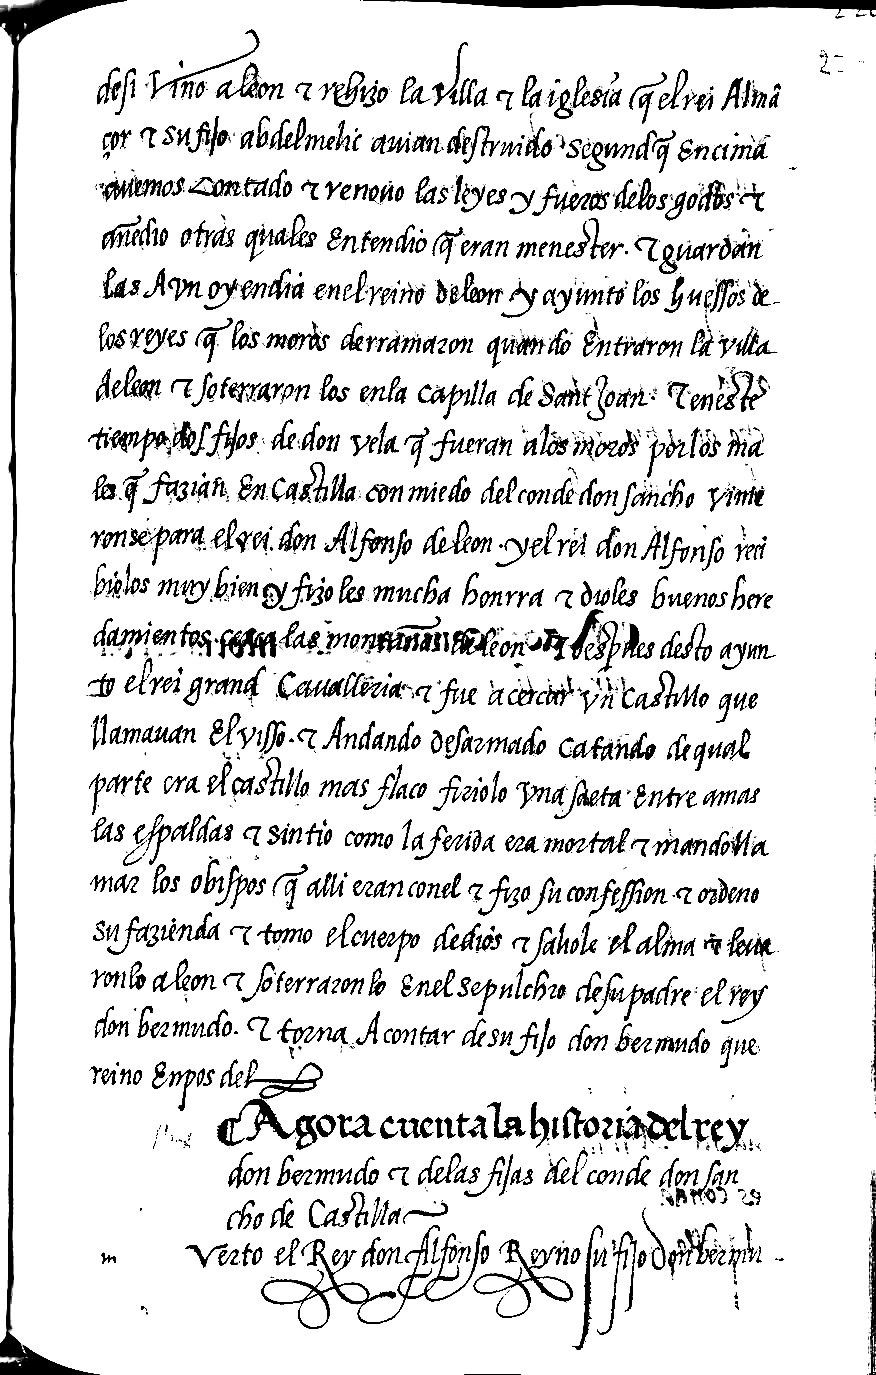 desi vino a leon τ rehizo la villa τ la iglesia q̃ el rei Almã
çor τ su fijo abdelmelic auian destruido segund q̃ encima
auemos contado τ renouo las leyes y fueros de los godos τ
añedio otras quales entendio q̃ eran menester. τ guardan
las Avn oy en dia en el reino de leon y ayunto los huessos de
los reyes q̃ los moros derramaron quando entraron la villa
de leon τ soterraron los en la capilla de Sant Joan. τ en este
tiempo dos fijos de don vela q̃ fueran a los moros por los ma
les q̃ fazian en Castilla con miedo del conde don sancho vinie
ronse para el rei don Alfonso de leon. y el rei don Alfonso reci
biolos muy bien y fizo les mucha honrra τ dioles buenos here
damientos cerca las montañas de leon τ despues desto ayun
to el rei grand Caualleria τ fue a cercar vn Castillo que
llamauan El visso. τ Andando desarmado catando de qual
parte era el castillo mas flaco firiolo vna saeta entre amas
las espaldas τ sintio como la ferida era mortal τ mando lla
mar los obispos q̃ alli eran con el τ fizo su confession τ ordeno
su fazienda τ tomo el cuerpo de dios τ saliole el alma τ leua
ronlo a leon τ soterraronlo en el sepulchro de su padre el rey
don bermudo. τ torna A contar de su fijo don bermudo que
reino en pos del
¶ Agora cuenta la historia del rey
don bermudo τ de las fijas del conde don san
cho de Castilla
m verto el Rey don Alfonso Reyno su fijo don bermu